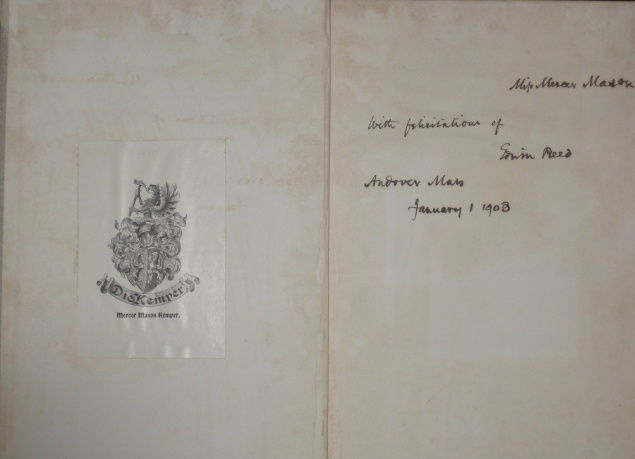 Die Kemper
Mercer Mason Kemper.
Miss Mercer Mason
With felicitations of
Edwin Reed
Andover Mass
January 1 1903